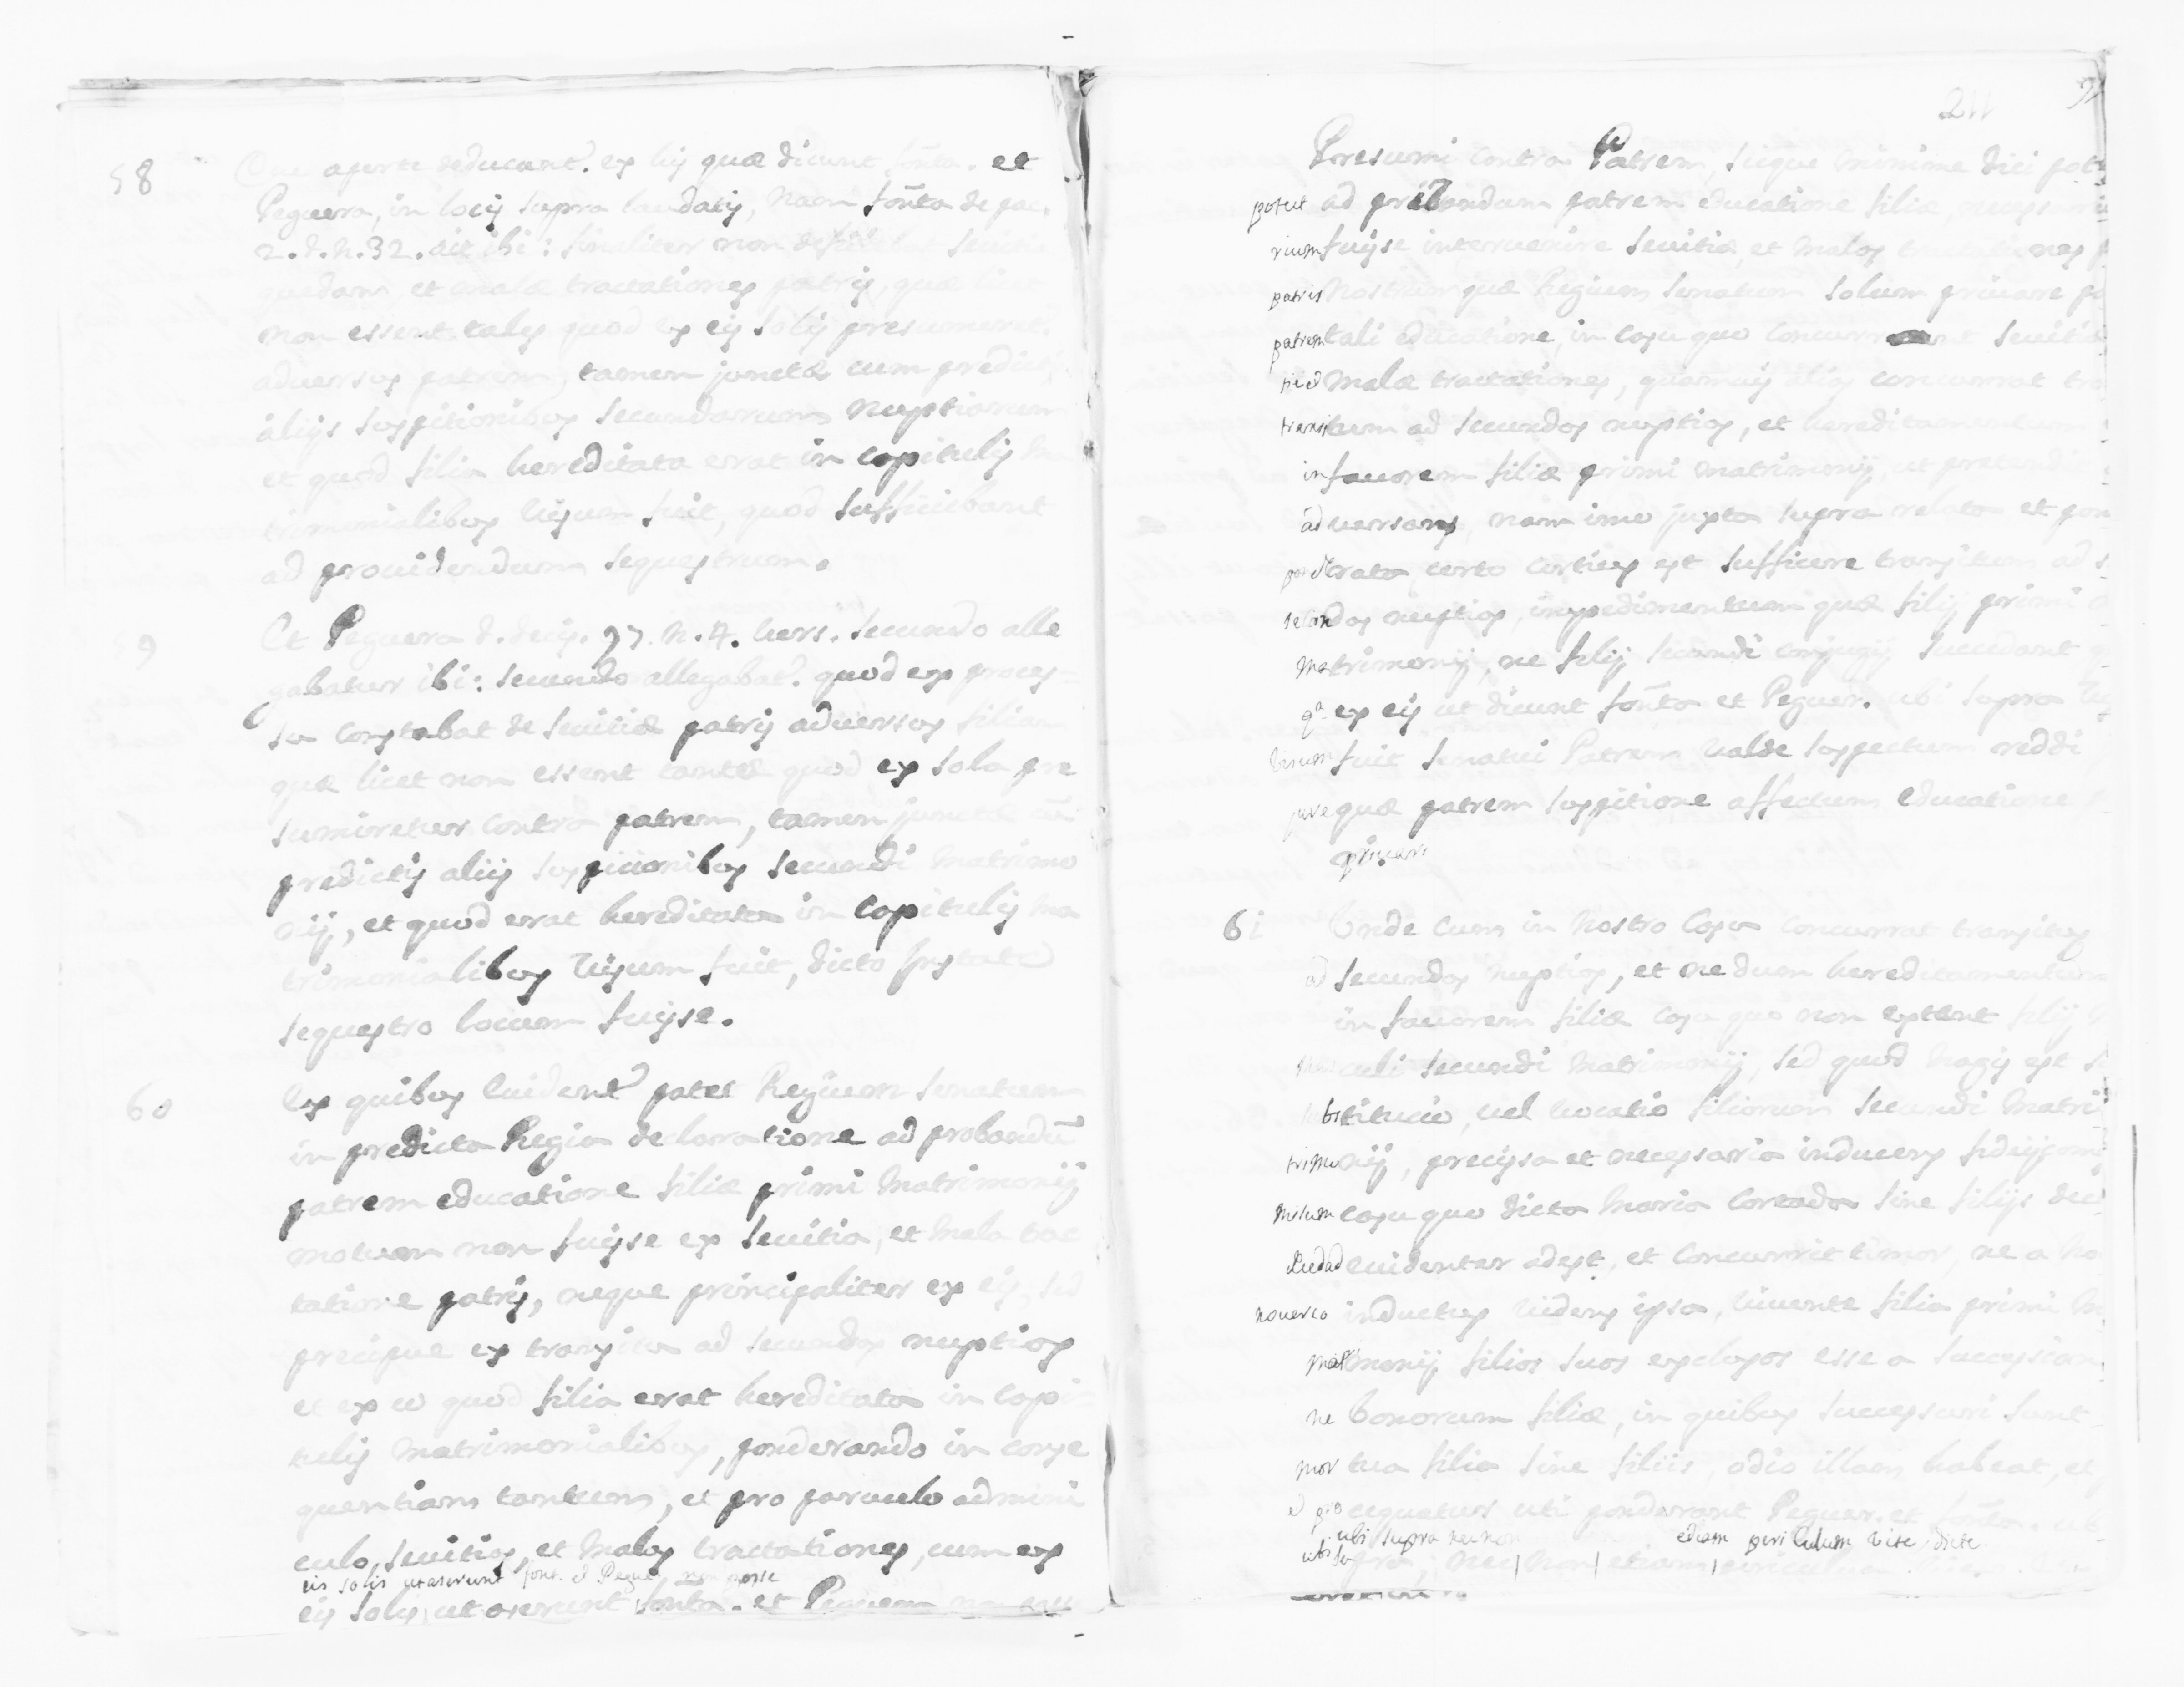 58 Que aperte deducunt.r ex hijs quæ dicunt font.a. et
Peguera, in locis supra laudatis, nam font.a de pac.
2. d. n. 32. ait ibi: finaliter non
quedam, et malæ tractationes patris, quæ
non essent tales quod ex eis solis presumeret.r
adversus patrem, tamen junctæ cum predictis
alijs suspitionibus secundarum nuptiarum
et quod filia hereditata erat in capitulis ma
trimonialibus visum fuit, quod sufficiebant
ad providendum sequestrum.
59 Et Peguera d. decis. 97. n. 4. vers. secundo alle
gabatur ibi: secundo allegabat.r quod ex proces=
su constabat de sevitiæ patris adversus filiam
quæ licet non essent tantæ quod ex sola pre
sumiretur contra patrem, tamen junctæ cũ
predictis aliis suspicionibus secundi matrimo
nij, et quod erat hereditata in capitulis ma
trimonialibus visum fuit, dicto
sequestro locum fuisse.
60 Ex quibus evident.r patet Regium senatum
in predicta Regia declaratione ad probandũ
patrem educatione filiæ primi matrimonij
motum non fuisse ex sevitia, et mala trac
tatione patris, neque principaliter ex eis, sed
precipue ex transitu ad secundas nuptias
et ex eo quod filia erat hereditata in capi
tulis matrimonialibus, ponderando in conse
quentiam tantum, et pro parvulo admini
culo, sevitias, et malas tractationes, cum ex
eis solis ut aserunt font. et Peguer. non posse
eis solis, ut aserunt font.a. et Peguera non
211
Presumi contra Patrem, sicque minime dici pot
potest ad privandum patrem educatione filiæ necessari
rium fuisse intervenire sevitiæ, et malas tractationes
patris nostrum quæ Regium senatum solum privare
patrem tali educatione, in casu quo concurrant sevitiæ
malæ tractationes, quamvis illis concurrat tran
transitum ad secundas nuptias, et hereditamentum
in favorem filiæ primi matrimonij, ut pretendit
adversans, nam imo juxta supra relata et pon
ponderata certo certius est sufficere transitum ad se
secundas nuptias, impedimentum quæ filij primi
matrimonij, ne filij secundi conjugij succedant,
q.a ex eis ut dicunt font.a et Peguer. ubi supra
visum fuit senatui Patrem valde suspectum reddi
jure quæ patrem suspitione affectum educatione
privari
61 Unde cum in nostro casu concurrat transitus
ad secundas nuptias, et ne dum hereditamentum
in favorem filiæ casu quo non extent filij
masculi secundi matrimonij, sed quod magis est s
substitucio, vel vocatio filiorum secundi matri
trimonij, precissa et necessaria inducens fideicomi
misum casu quo dicta Maria Cortada sine filijs dece
decedad evidenter adest, et concurrit timor, ne a no
noverca inductus videns ipsa, vivente filia primi ma
matrimonij filios suos exclusos esse a successio
ne bonorum filiæ, in quibus successuri sunt
mortua filia sine filiis, odio illam habeat, et
et prosequatur uti ponderant Peguer. et font.a. ub
ubi supra nec non etiam periculum vite dicte
ubi supra, nec non etiam periculum